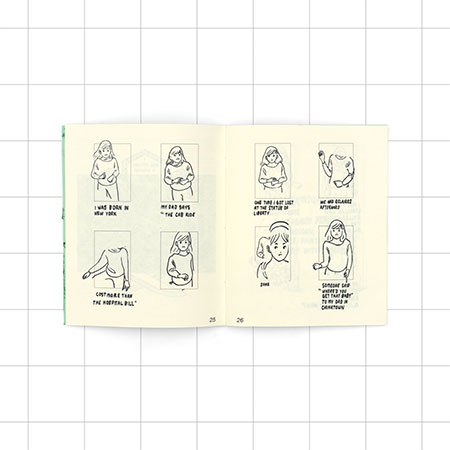 I WAS BORN IN
NEW YORK
MY DAD SAYS
"THE CAB RIDE
COST MORE THAN
THE HOSPITAL BILL"
25
ONE TIME I GOT LOST
AT THE STATUE OF
LIBERTY
SOMEONE SAID
"WHERE'D YOU
GET THAT BABY"
TO MY DAD IN
CHINATOWN
26